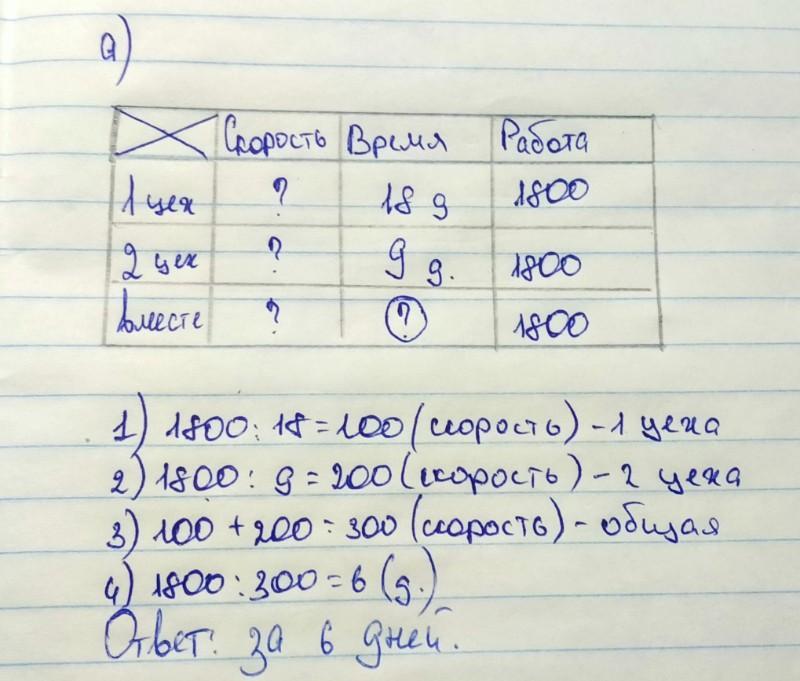 а)
Скорость Время Работа
1 цех ? 18 д 1800
2 цех ? 9 д. 1800
вместе ? ? 1800
1) 1800 : 18 = 100 (скорость) - 1 цеха
2) 1800 : 9 = 200 (скорость) - 2 цеха
3) 100 + 200 = 300 (скорость) - общая
4) 1800 : 300 = 6 (д.)
Ответ: за 6 дней.